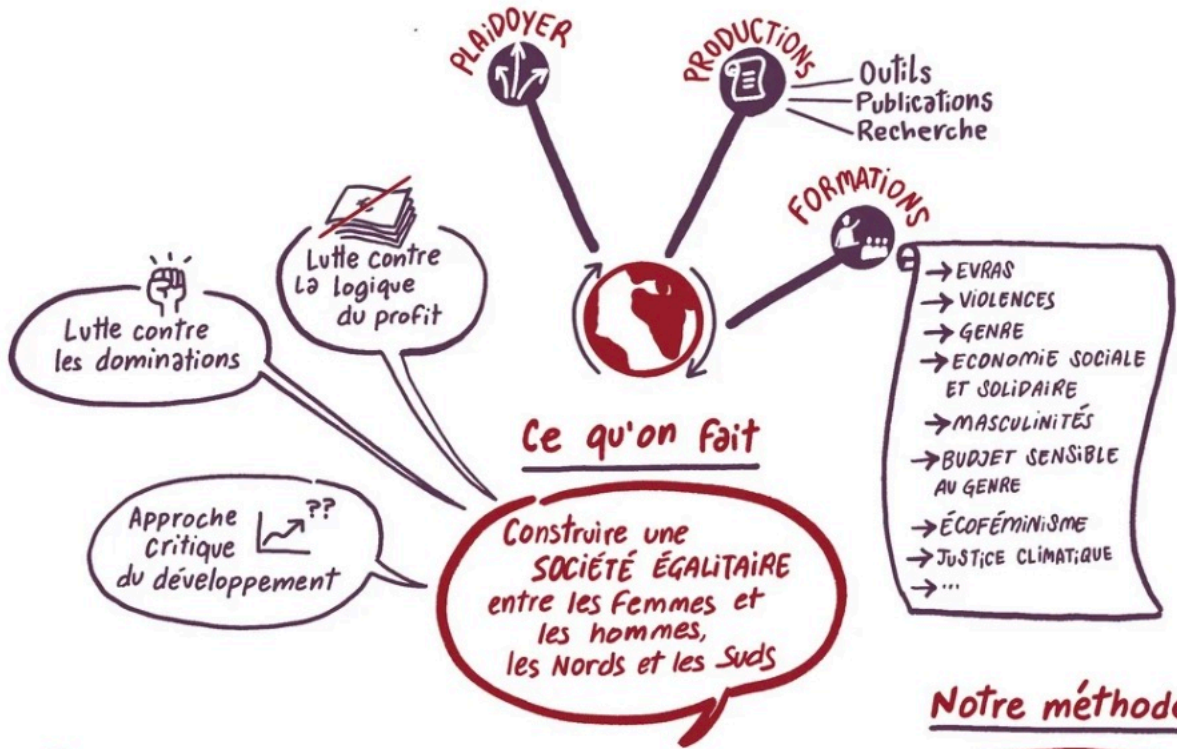 PLAIDOYER
PRODUCTIONS
Outils
Publications
Recherche
FORMATIONS
→ EVRAS
→ VIOLENCES
→ GENRE
→ ECONOMIE SOCIALE
ET SOLIDAIRE
→ MASCULINITÉS
→ BUDJET SENSIBLE
AU GENRE
→ ÉCOFÉMINISME
→ JUSTICE CLIMATIQUE
→ ...
Lutte contre
la logique
du profit
Lutte contre
les dominations
Approche
critique
du développement
??
Ce qu'on fait
Construire une
SOCIÉTÉ ÉGALITAIRE
entre les femmes et
les hommes,
les Nords et les Suds
Notre méthode